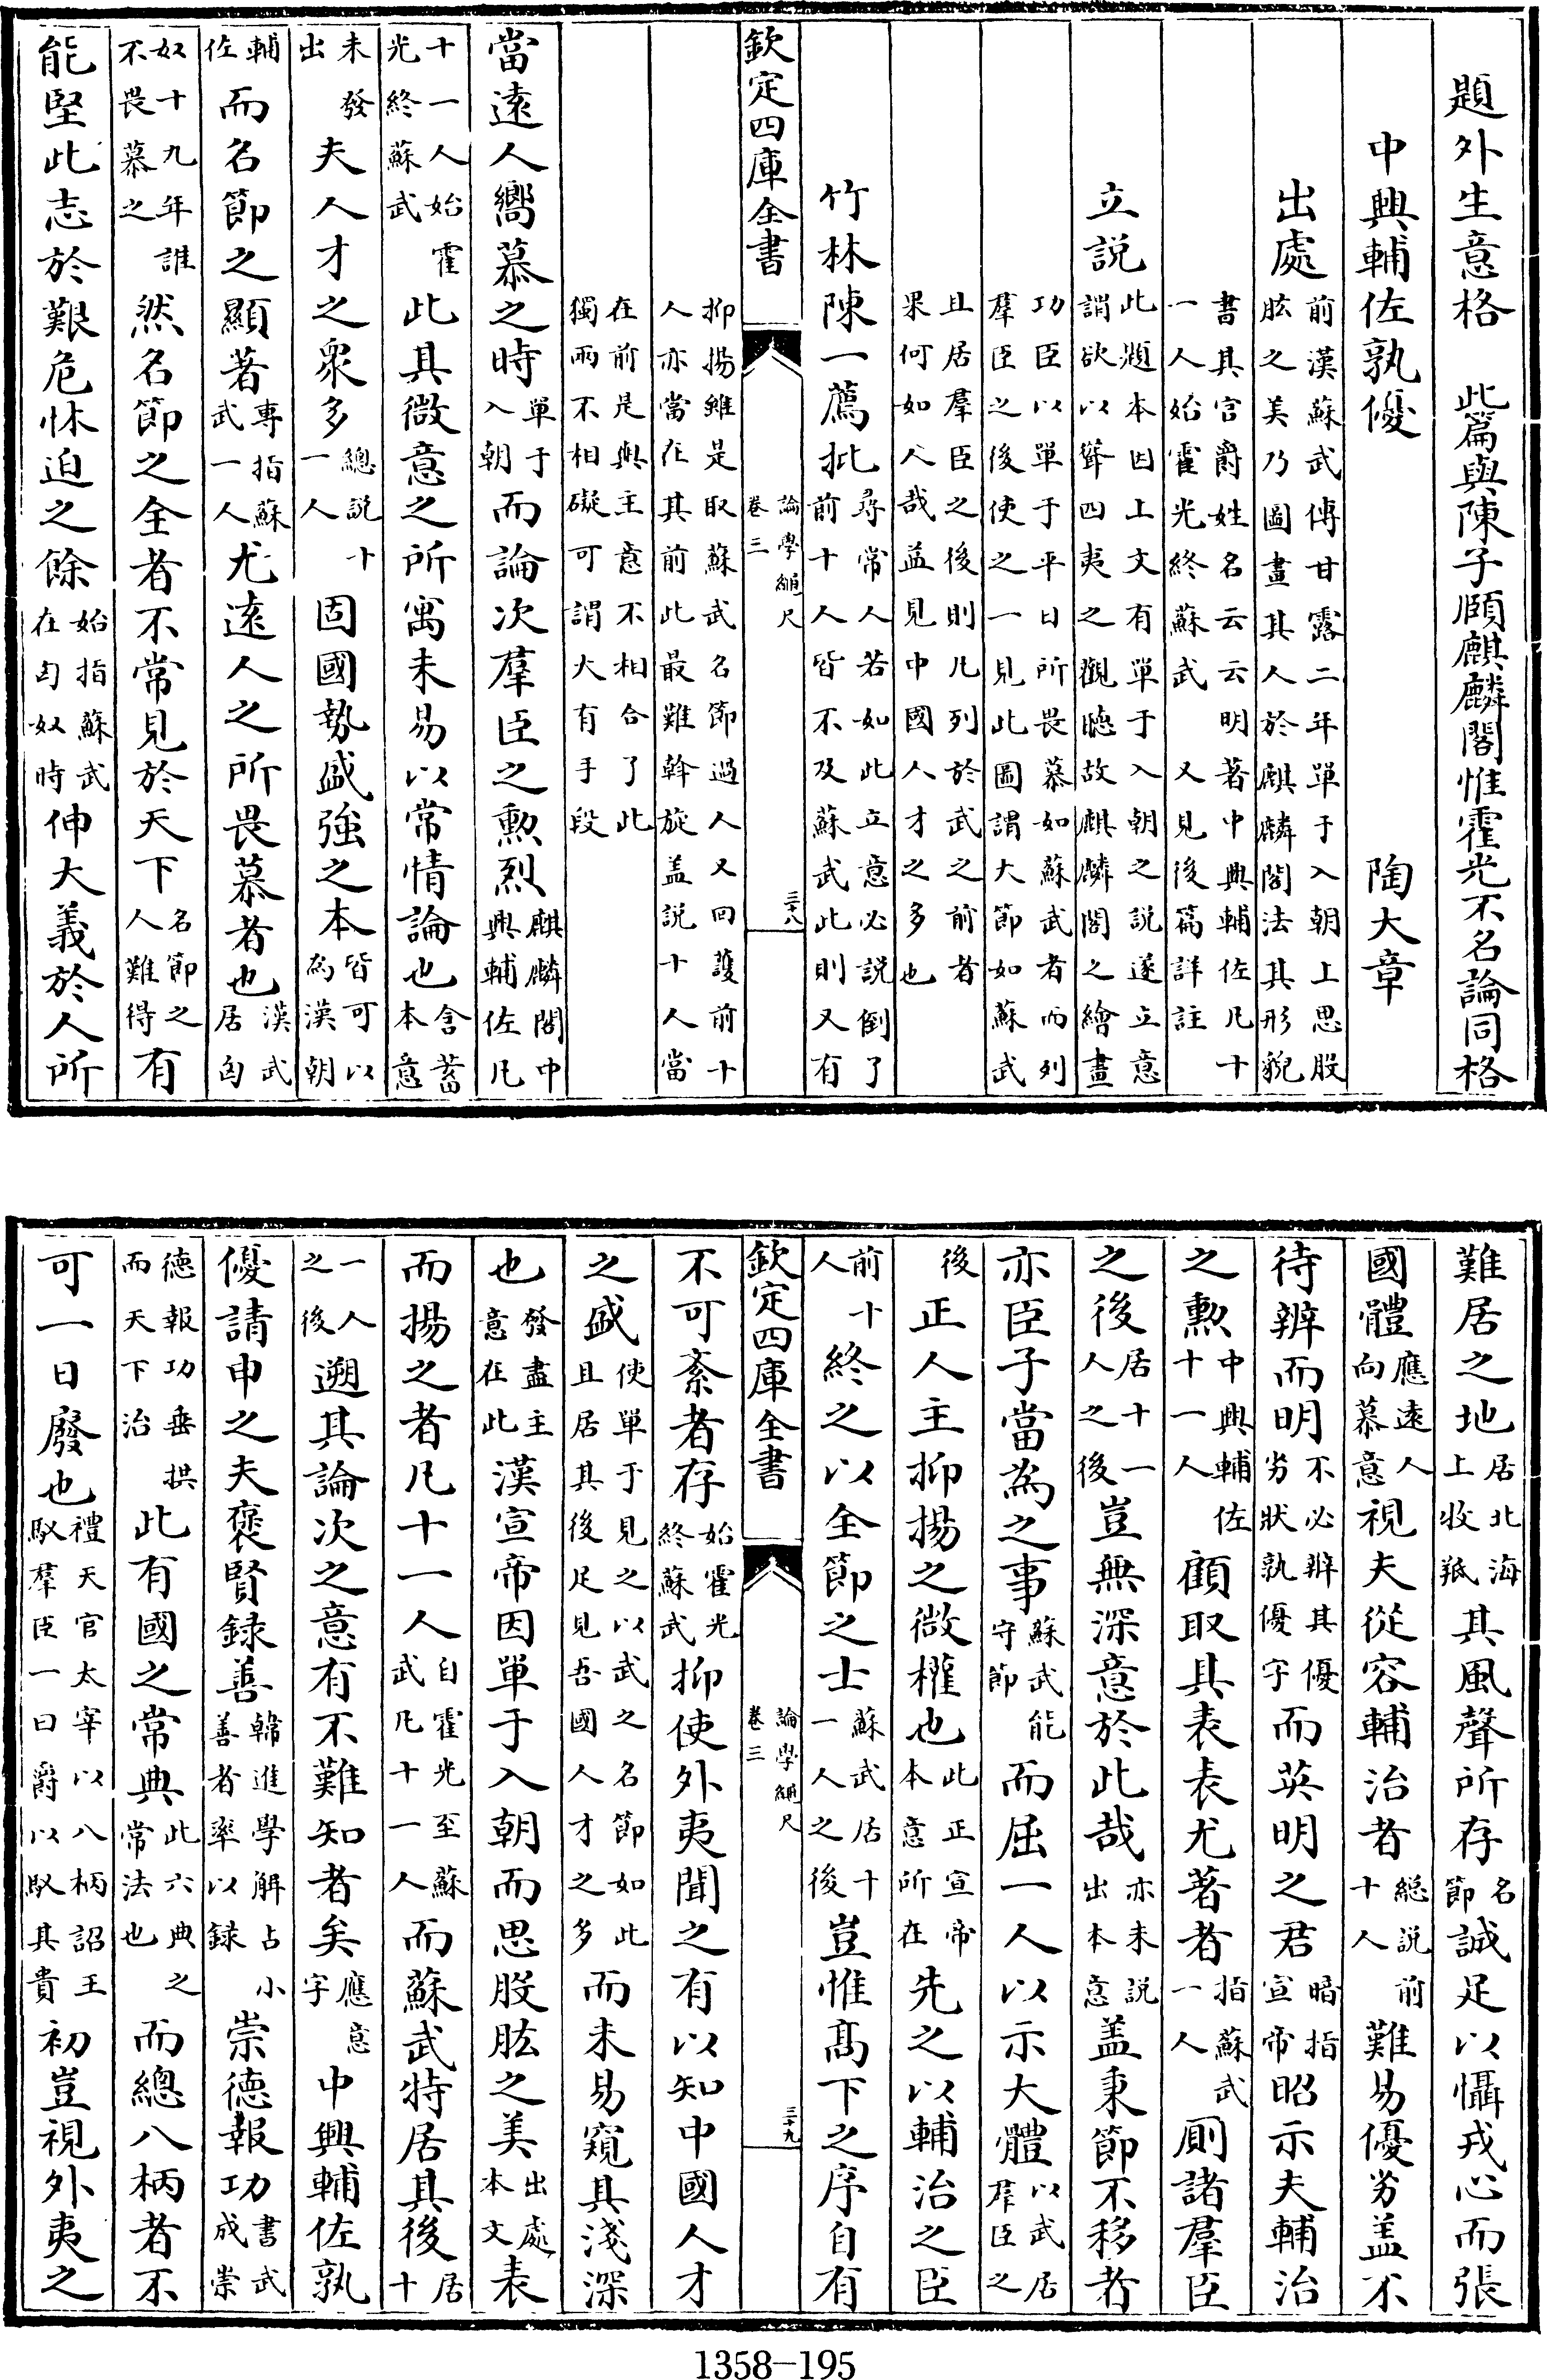 題外生意格　此篇與陳子頎麒麟閣惟霍光不名論同格
中興輔佐孰優　陶大章
出處　前漢蘇武傳甘露二年單于入朝上思股肱之美乃圖畫其人於麒麟閣法其形貌
書其官爵姓名云云明著中興輔佐凡十一人始霍光終蘇武又見後篇詳註
立説　此題本因上文有單于入朝之説遂立意謂欲以聳四夷之觀聽故麒麟閣之繪畫
功臣以單于平日所畏慕如蘇武者而列羣臣之後使之一見此圖謂大節如蘇武
且居羣臣之後則凡列於武之前者果何如人哉益見中國人才之多也
竹林陳一薦批　尋常人若如此立意必説倒了前十人皆不及蘇武此則又有
欽定四庫全書　論學繩尺　卷三　三十八
抑揚雖是取蘇武名節過人又回護前十人亦當在其前此最難幹旋盖説十人當
在前是與主意不相合了此獨兩不相礙可謂大有手段
當遠人嚮慕之時單于入朝而論次羣臣之勲烈麒麟閣中興輔佐凡
十一人始霍光終蘇武此其微意之所寓未易以常情論也含蓄本意
未發出夫人才之衆多總説十一人固國勢盛強之本皆可以為漢朝
輔佐而名節之顯著專指蘇武一人尤遠人之所畏慕者也漢武居匈
奴十九年誰不畏慕之然名節之全者不常見於天下名節之人難得有
能堅此志於艱危怵迫之餘始指蘇武在匈奴時伸大義於人所
難居之地居北海上收羝其風聲所存名節誠足以懾戎心而張
國體應遠人向慕意視夫從容輔治者總説前十人難易優劣盖不
待辨而明不必辨其優劣狀孰優字而英明之君暗指宣帝昭示夫輔治
之勲中興輔佐十一人顧取其表表尤著者指蘇武一人厠諸羣臣
之後居十一人之後豈無深意於此哉亦未説出本意盖秉節不移者
亦臣子當為之事蘇武能守節而屈一人以示大體以武居羣臣之
後正人主抑揚之微權也此正宣帝本意所在先之以輔治之臣
前十人終之以全節之士蘇武居十一人之後豈惟高下之序自有
欽定四庫全書　論學繩尺　卷三　三十九
不可紊者存始霍光終蘇武抑使外夷聞之有以知中國人才
之盛使單于見之以武之名節如此且居其後足見吾國人才之多而未易窺其淺深
也發盡主意在此漢宣帝因單于入朝而思股肱之美出處本文表
而揚之者凡十一人自霍光至蘇武凡十一人而蘇武特居其後居十
一人之後遡其論次之意有不難知者矣應意字中興輔佐孰
優請申之夫褒賢録善韓進學解占小善者率以録崇德報功書武成崇
德報功垂拱而天下治此有國之常典此六典之常法也而總八柄者不
可一日廢也禮天官太宰以八柄詔王馭羣臣一曰爵以馭其貴初豈視外夷之
1358–195